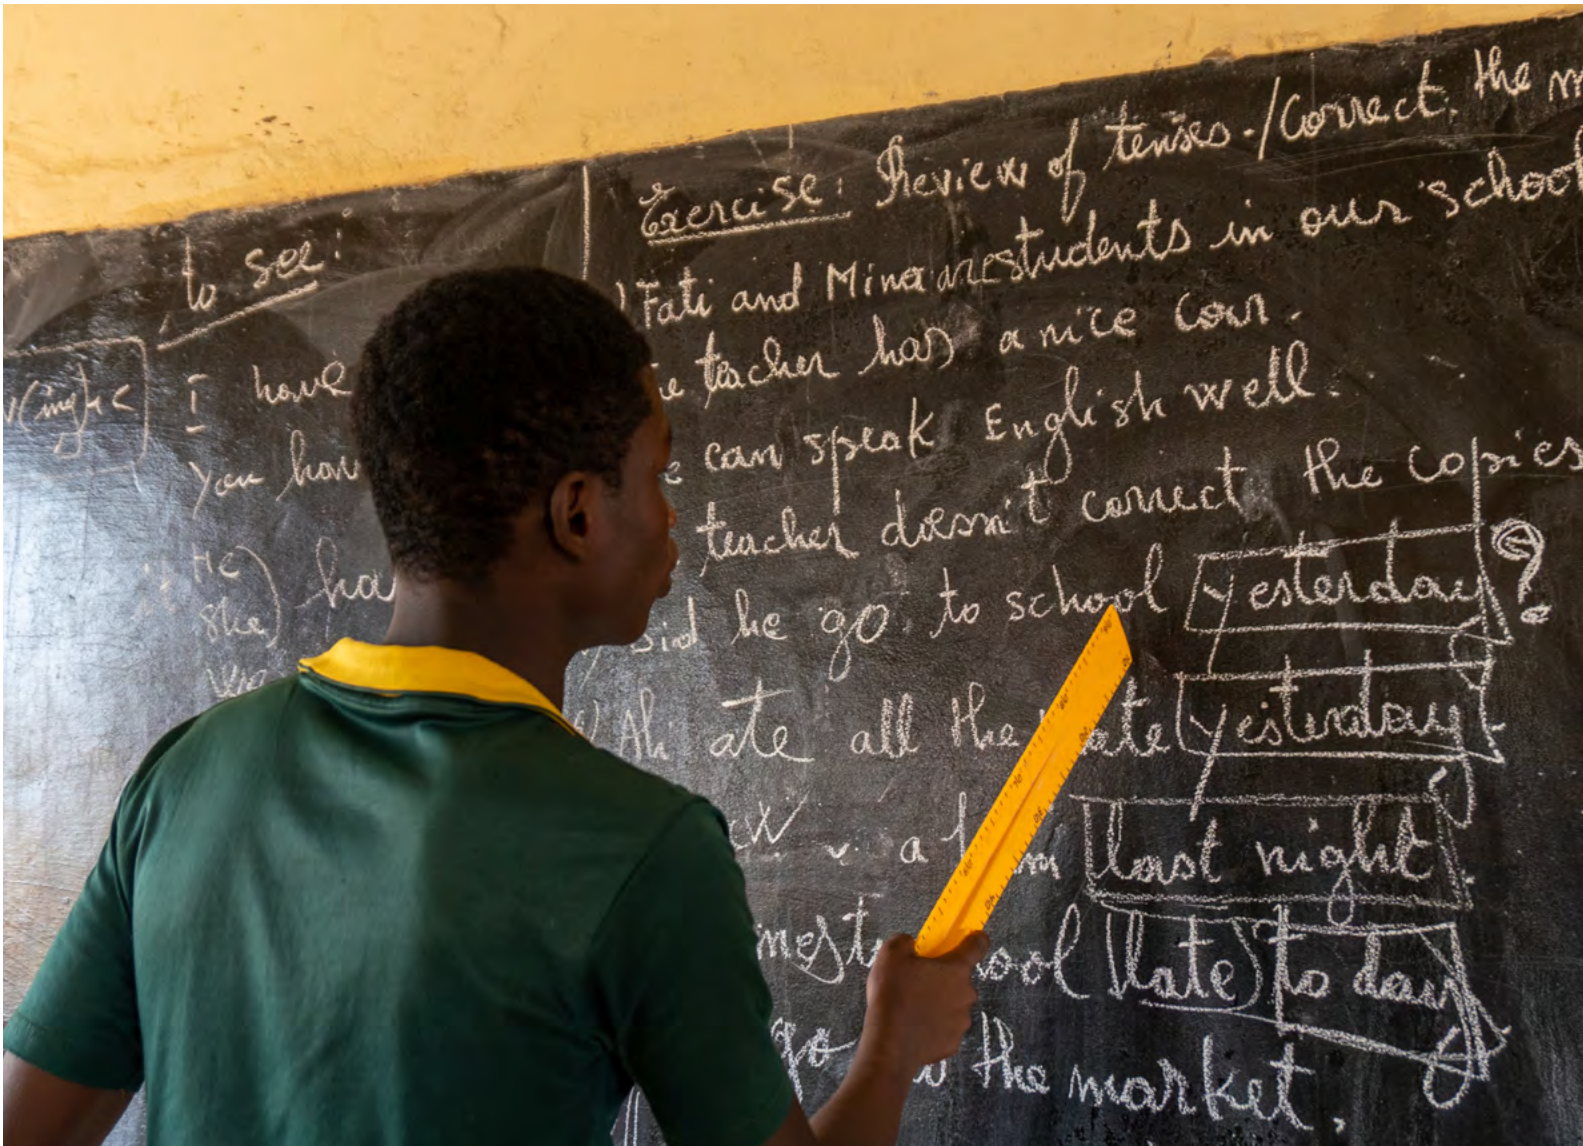 to see:
I have
You hav
He
she) ha
Exercise: Review of tenses./Correct the m
Fati and Mina are students in our school
teacher has a nice car.
can speak English well.
teacher doesn't correct the copies
Did he go to school yesterday?
Ali ate all the yesterday
a last night.
late) to day
go the market.